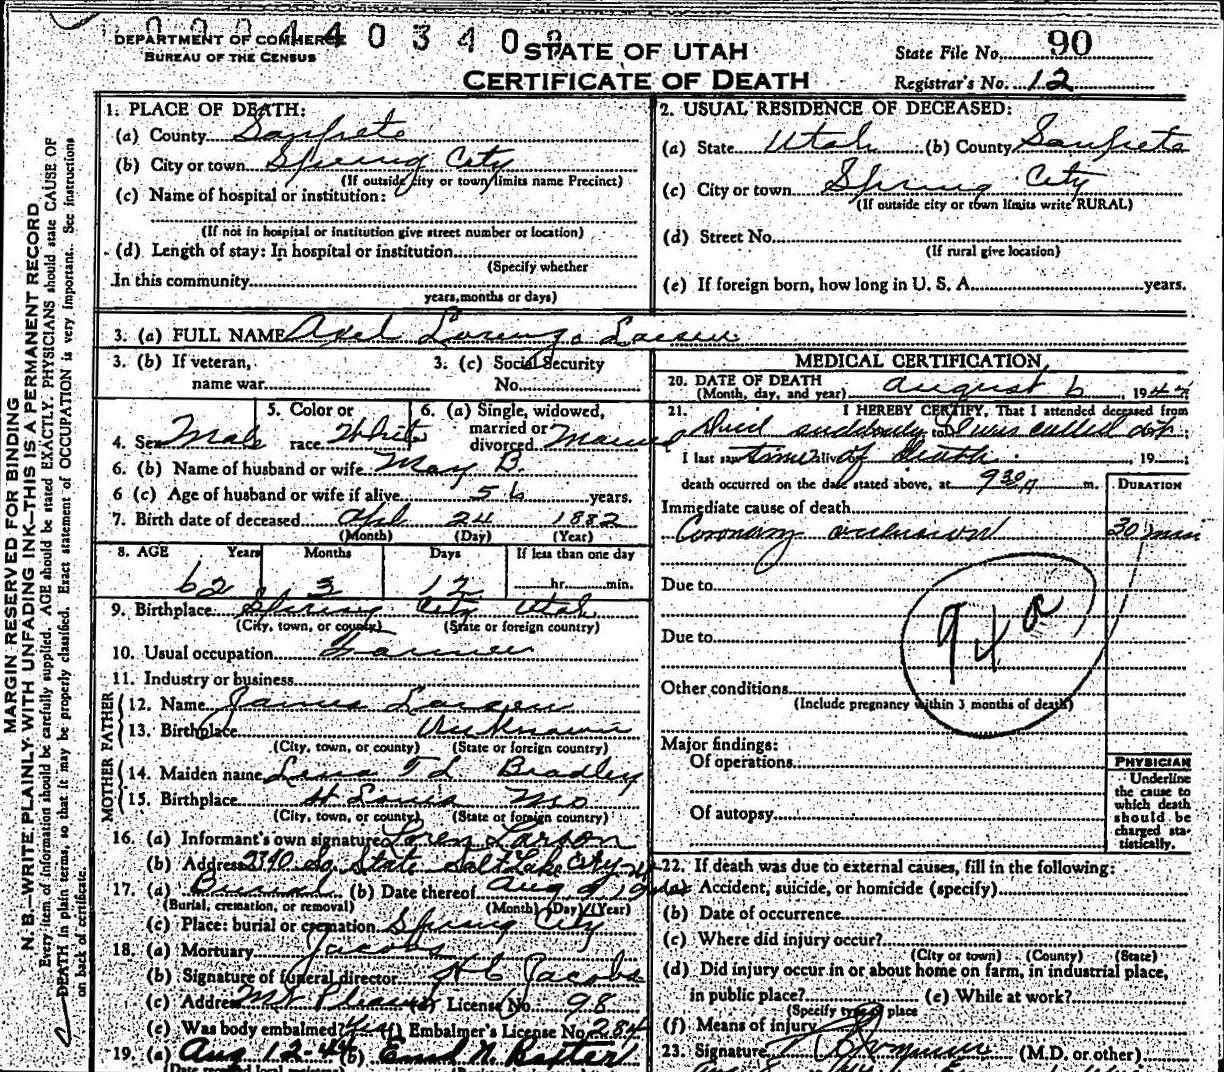 DEPARTMENT OF COMMERCE
BUREAU OF THE CENSUS
STATE OF UTAH
CERTIFICATE OF DEATH
State File No. 90
Registrar's No. 12
MARGIN RESERVED FOR BINDING
N. B.—WRITE PLAINLY WITH UNFADING INK—THIS IS A PERMANENT RECORD
Every item of information should be carefully supplied. AGE should be stated EXACTLY. PHYSICIANS should state CAUSE OF
DEATH in plain terms, so that it may be properly classified. Exact statement of OCCUPATION is very important. See instructions
on back of certificate.
1. PLACE OF DEATH:
(a) County Sanpete
(b) City or town Spring City
(If outside city or town limits name Precinct)
(c) Name of hospital or institution:
(If not in hospital or institution give street number or location)
(d) Length of stay: In hospital or institution
(Specify whether
In this community
years, months or days)
2. USUAL RESIDENCE OF DECEASED:
(a) State Utah (b) County Sanpete
(c) City or town Spring City
(If outside city or town limits write RURAL)
(d) Street No.
(If rural give location)
(e) If foreign born, how long in U. S. A. years.
3. (a) FULL NAME Axel Lorenzo Larsen
3. (b) If veteran,
name war
3. (c) Social Security
No.
4. Sex Male
5. Color or
race White
6. (a) Single, widowed,
married or
divorced Married
6. (b) Name of husband or wife May B.
6 (c) Age of husband or wife if alive 56 years.
7. Birth date of deceased April 24 1882
(Month) (Day) (Year)
8. AGE Years Months Days If less than one day
62 3 12 hr. min.
9. Birthplace Spring City Utah
(City, town, or county) (State or foreign country)
10. Usual occupation Farmer
11. Industry or business
FATHER
12. Name James Larsen
13. Birthplace Unknown
(City, town, or county) (State or foreign country)
MOTHER
14. Maiden name Lena Bradley
15. Birthplace St Louis Mo
(City, town, or county) (State or foreign country)
16. (a) Informant's own signature Loren Larson
(b) Address 2390 So. State Salt Lake City
17. (a) Burial (b) Date thereof Aug 9, 1944
(Burial, cremation, or removal) (Month) (Day) (Year)
(c) Place: burial or cremation Spring City
18. (a) Mortuary Jacobs
(b) Signature of funeral director H C Jacobs
(c) Address Mt Pleasant License No. 98
(e) Was body embalmed? Yes (f) Embalmer's License No. 284
19. (a) Aug 12-44 (b)
MEDICAL CERTIFICATION
20. DATE OF DEATH
(Month, day, and year) August 6, 1944
21. I HEREBY CERTIFY, That I attended deceased from
Died suddenly to I was called at
I last saw time alive of death. , 19
death occurred on the date stated above, at 930 m.
DURATION
Immediate cause of death
Coronary occlusion 30 min
Due to
Due to
94a
Other conditions
(Include pregnancy within 3 months of death)
Major findings:
Of operations
Of autopsy
PHYSICIAN
Underline
the cause to
which death
should be
charged sta-
tistically.
22. If death was due to external causes, fill in the following:
(a) Accident, suicide, or homicide (specify)
(b) Date of occurrence
(c) Where did injury occur?
(City or town) (County) (State)
(d) Did injury occur in or about home on farm, in industrial place,
in public place? (e) While at work?
(Specify type of place
(f) Means of injury
23. Signature (M.D. or other)